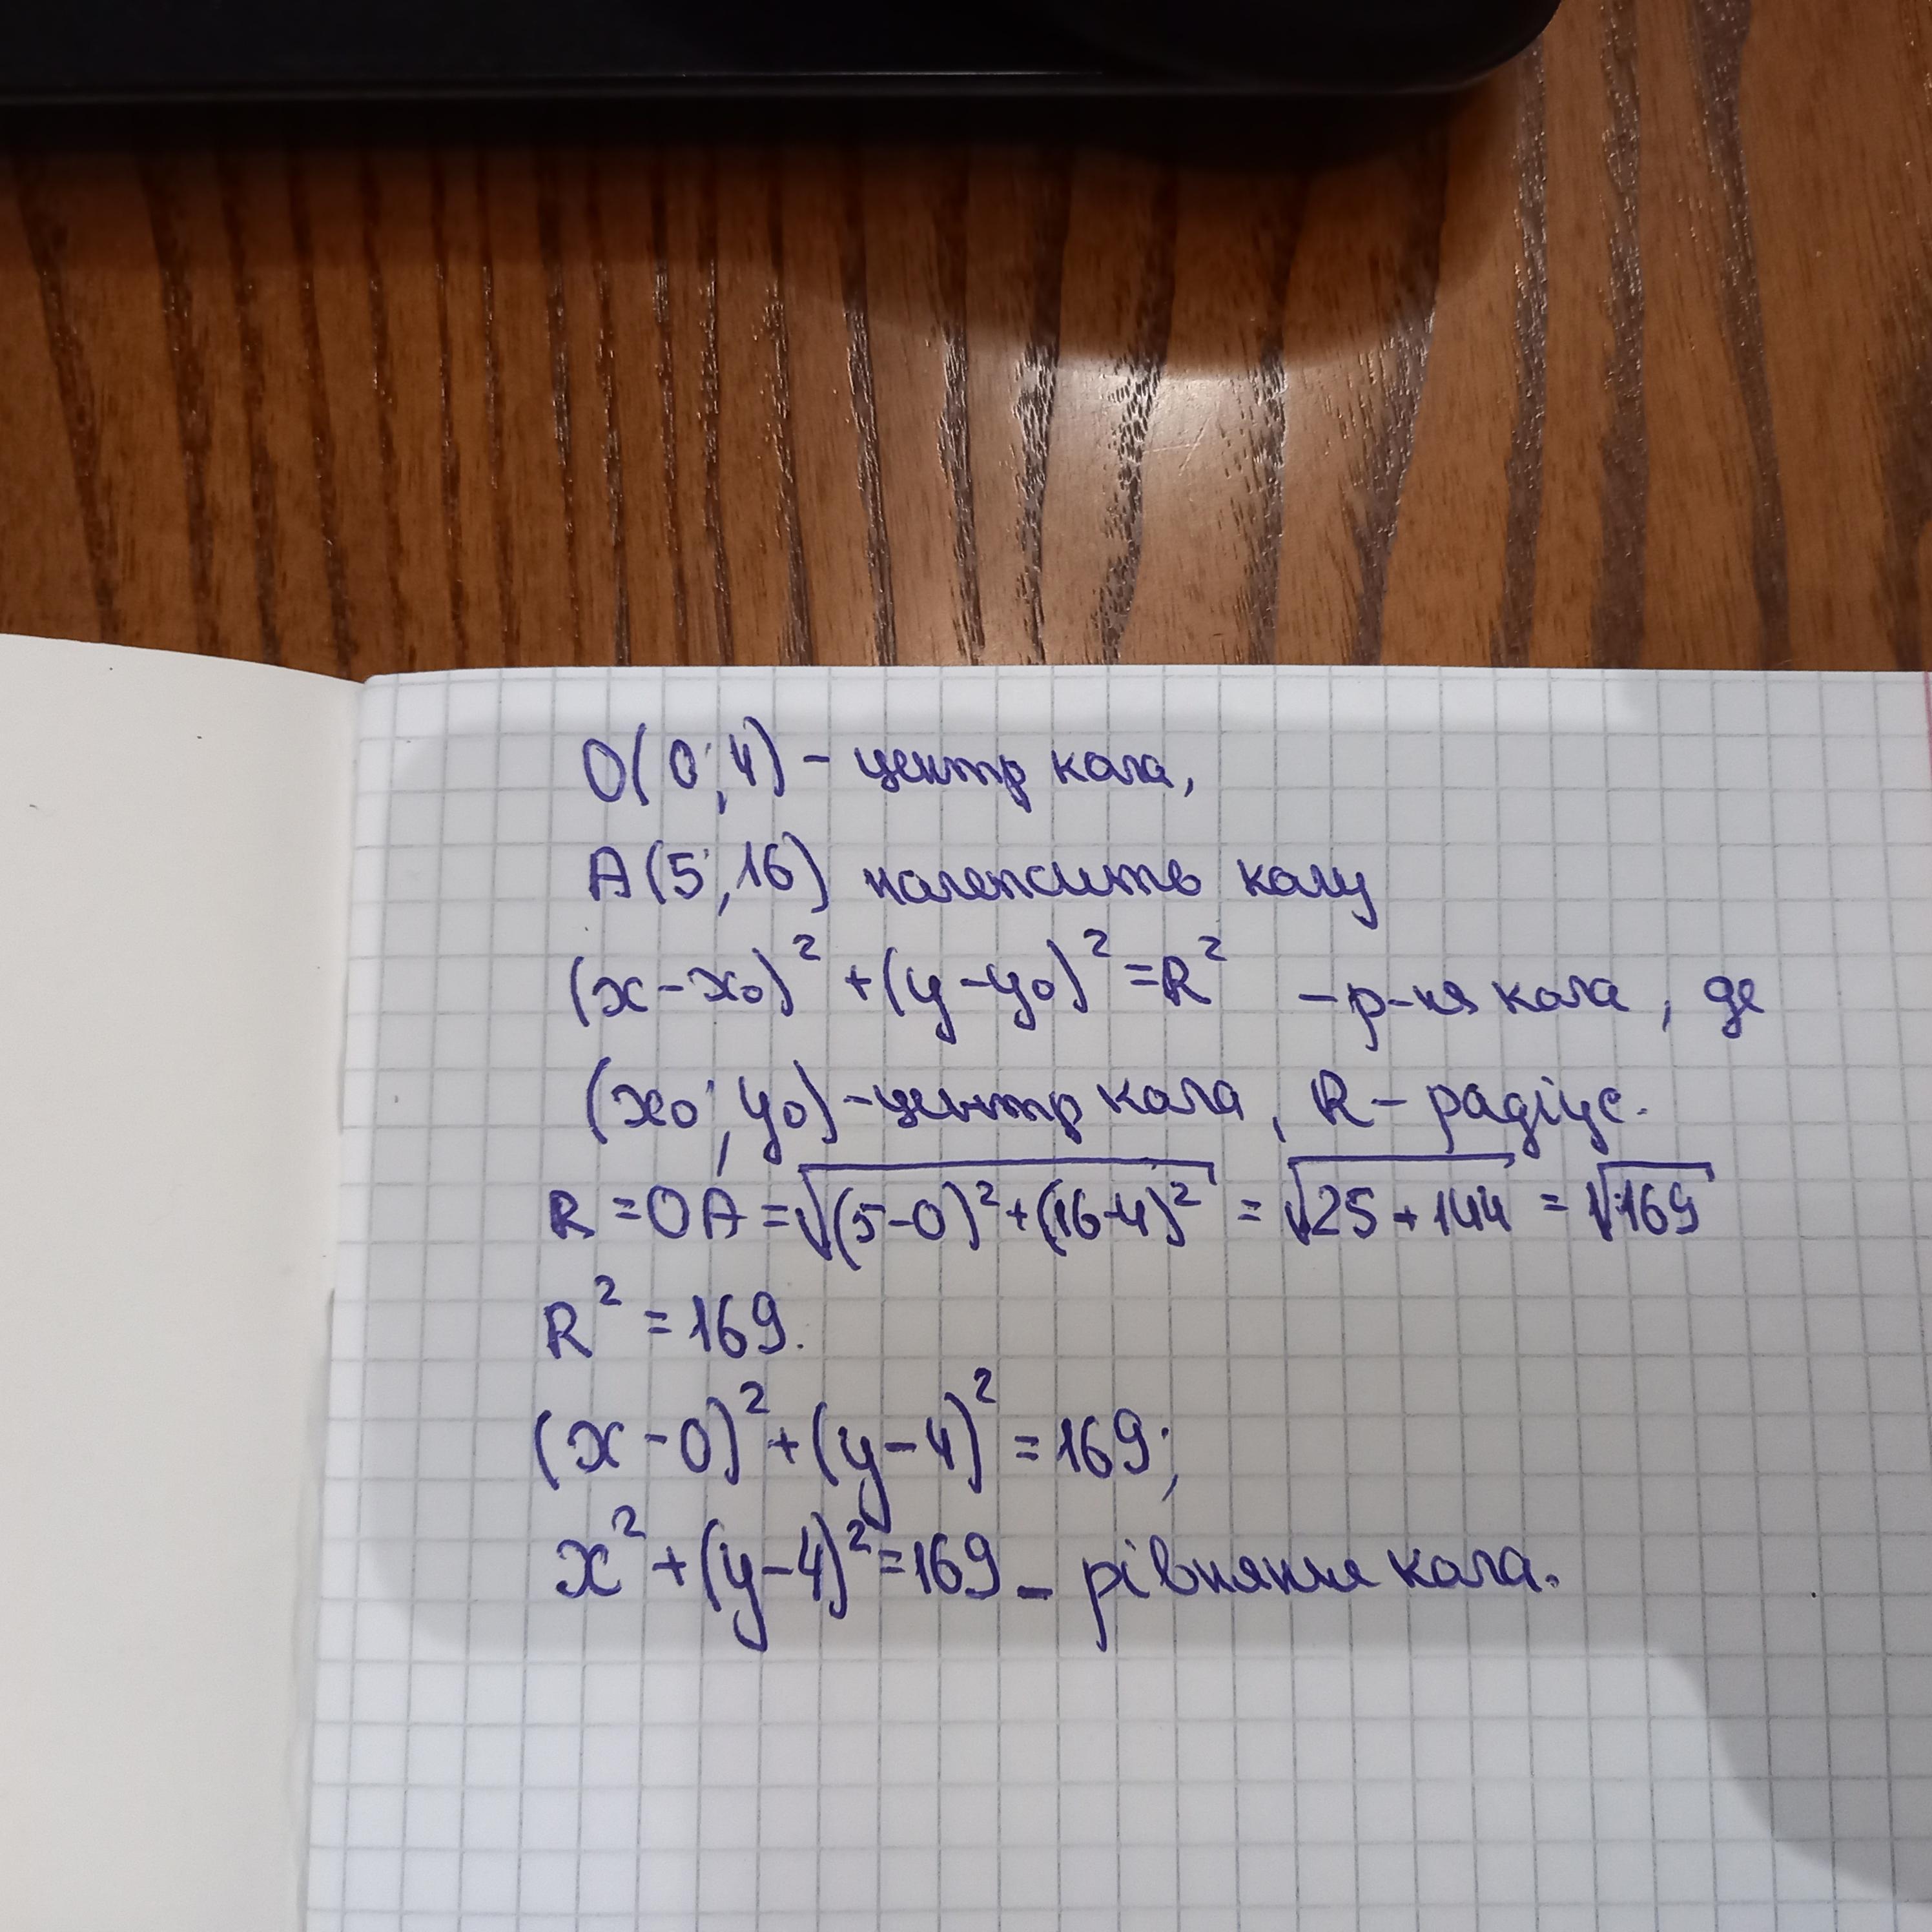 O(0; 4) - центр кола,
A(5; 16) належить колу
(x-x₀)² + (y-y₀)² = R² - р-ня кола, де
(x₀; y₀) - центр кола, R - радіус.
R = OA = √((5-0)² + (16-4)²) = √(25 + 144) = √169
R² = 169.
(x-0)² + (y-4)² = 169;
x² + (y-4)² = 169 - рівняння кола.